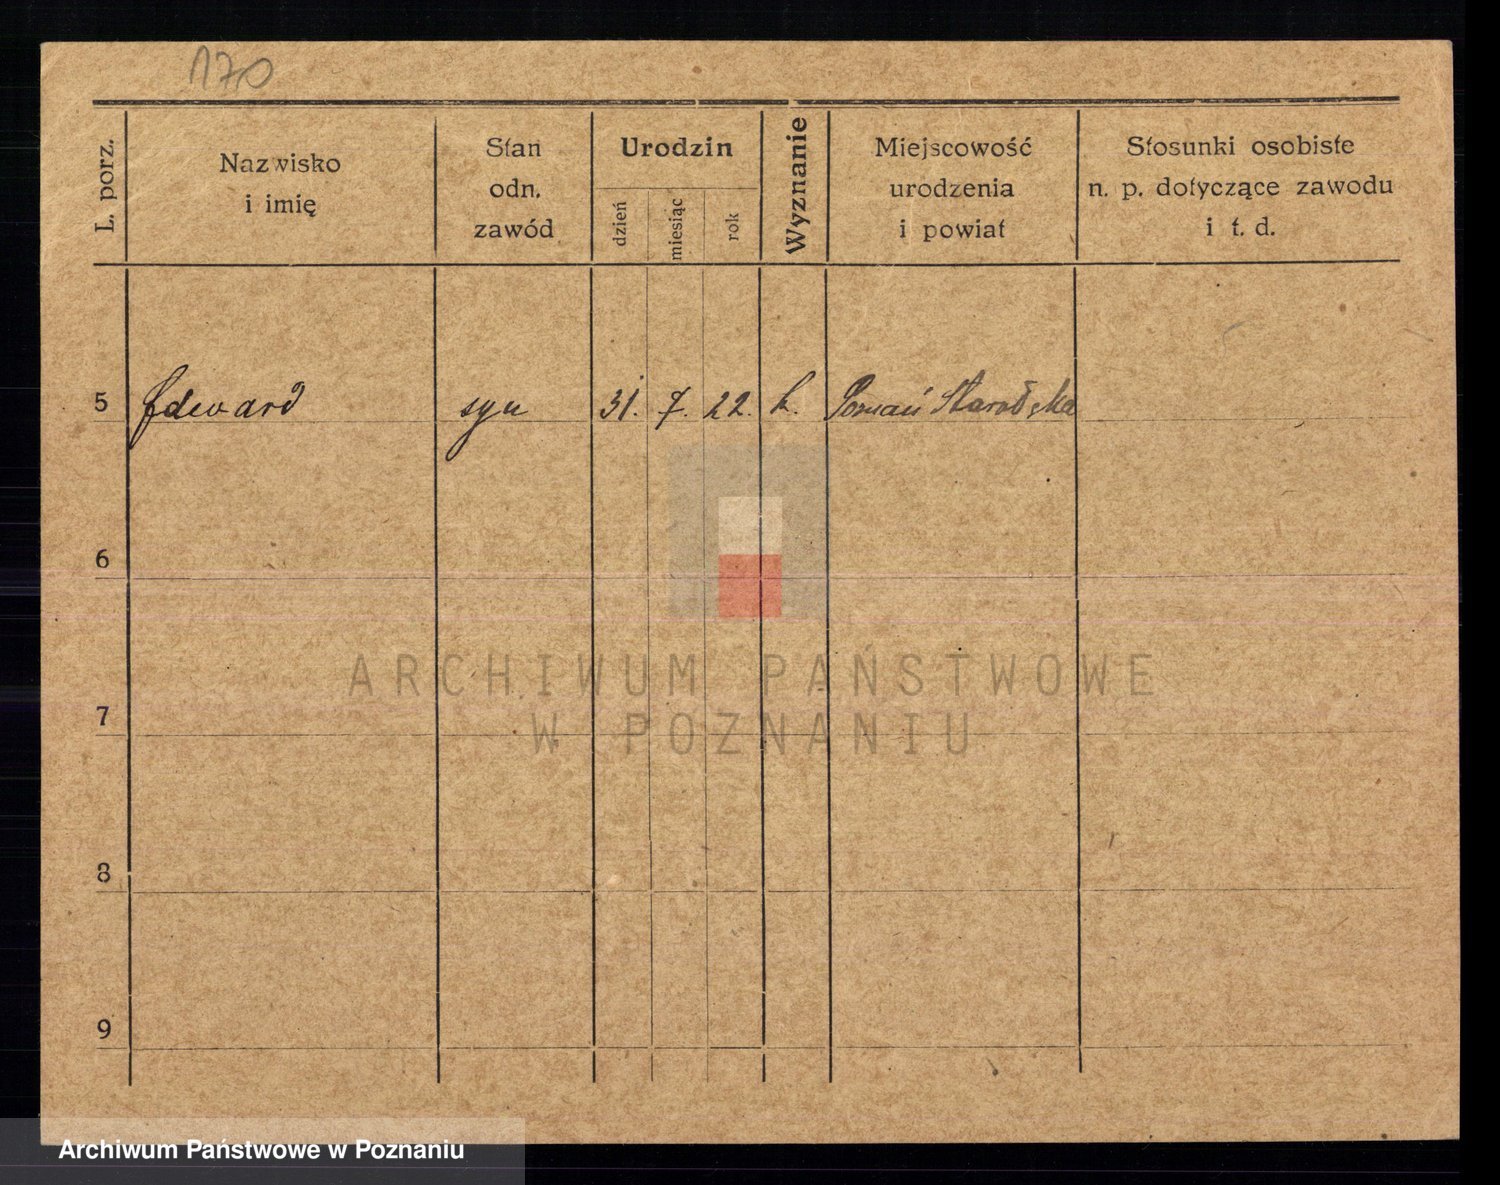 170
L. porz.
Nazwisko
i imię
Stan
odn.
zawód
Urodzin
dzień
miesiąc
rok
Wyznanie
Miejscowość
urodzenia
i powiat
Stosunki osobiste
n. p. dotyczące zawodu
i t. d.
5 Edward syn 31. 7. 22. k. Poznań
6
7
8
9
ARCHIWUM PAŃSTWOWE
W POZNANIU
Archiwum Państwowe w Poznaniu